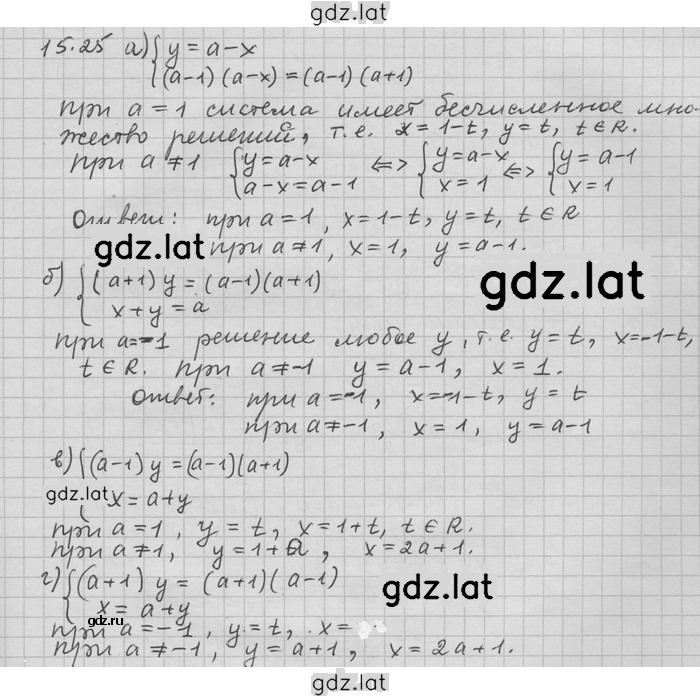 gdz.lat
15.25 а) { y = a - x
(a-1)(a-x) = (a-1)(a+1)
при a = 1 система имеет бесчисленное мно-
жество решений, т.е. x = 1-t, y = t, t ∈ R.
При a ≠ 1 { y = a-x a-x = a-1 <=> { y = a-x x = 1 <=> { y = a-1 x = 1
Ответ: при a = 1, x = 1-t, y = t, t ∈ R
gdz.lat при a ≠ 1, x = 1, y = a-1.
б) { (a+1) y = (a-1)(a+1)
x + y = a
gdz.lat
при a = -1 решение любое y, т.е. y = t, x = -1-t,
t ∈ R. при a ≠ -1 y = a-1, x = 1.
Ответ: при a = -1, x = -1-t, y = t
при a ≠ -1, x = 1, y = a-1
в) { (a-1) y = (a-1)(a+1)
gdz.lat x = a+y
при a = 1, y = t, x = 1+t, t ∈ R.
при a ≠ 1, y = 1+a, x = 2a+1.
г) { (a+1) y = (a+1)(a-1)
gdz.lat
x = a+y
gdz.ru
при a = -1, y = t, x =
при a ≠ -1, y = a+1, x = 2a+1.
gdz.lat